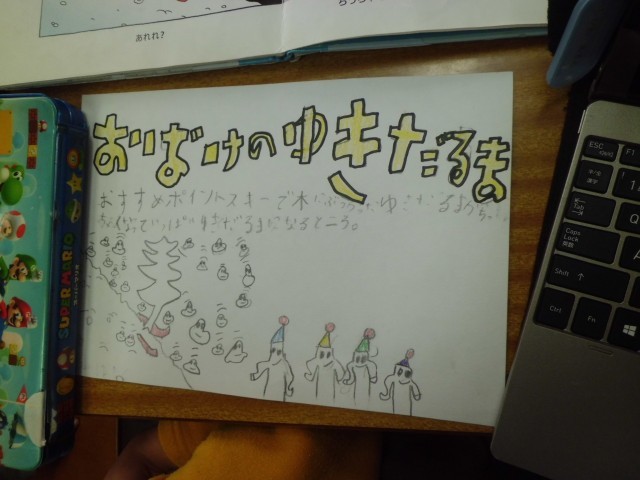 あれれ?
おばけのゆきだるま
おすすめポイントスキーで木にぶつかったゆきだるまがちっ
なっていっぱいゆきだるまになるところ。
SUPER MARIO
ESC
F1
Tab
Caps Lock
英数
Shift
Ctrl
Fn